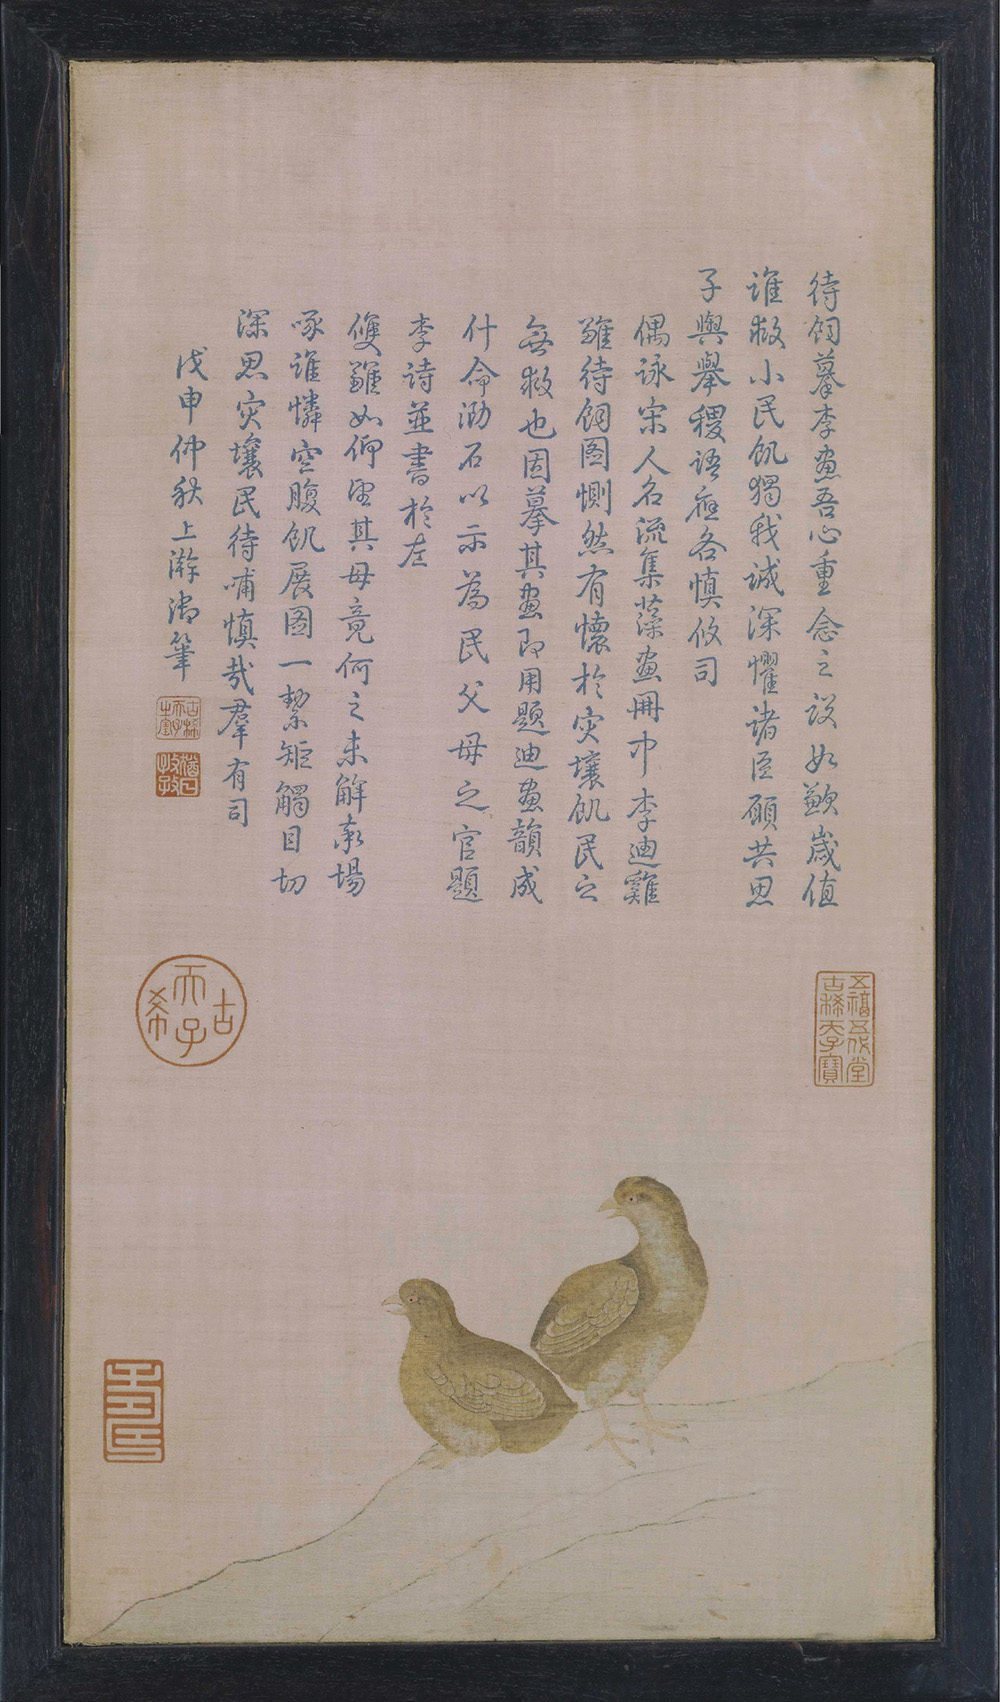 待飼摹李畫吾心重念之設如歉歲值
誰救小民飢獨我誠深懼諸臣願共思
子輿舉稷語應各慎攸司
偶詠宋人名流集藻畫冊中李迪雞
雛待飼圖惻然有懷於灾壤飢民之
無救也因摹其畫即用題迪畫韻成
什命泐石以示為民父母之官題
李詩並書於左
雙雛如仰望其母竟何之未解索場
啄誰憐空腹飢展圖一絜矩觸目切
深思灾壤民待哺慎哉羣有司
戊申仲秋上澣御筆
古稀天子之寶
猶日孜孜
五福五代堂古稀天子寶
古希天子